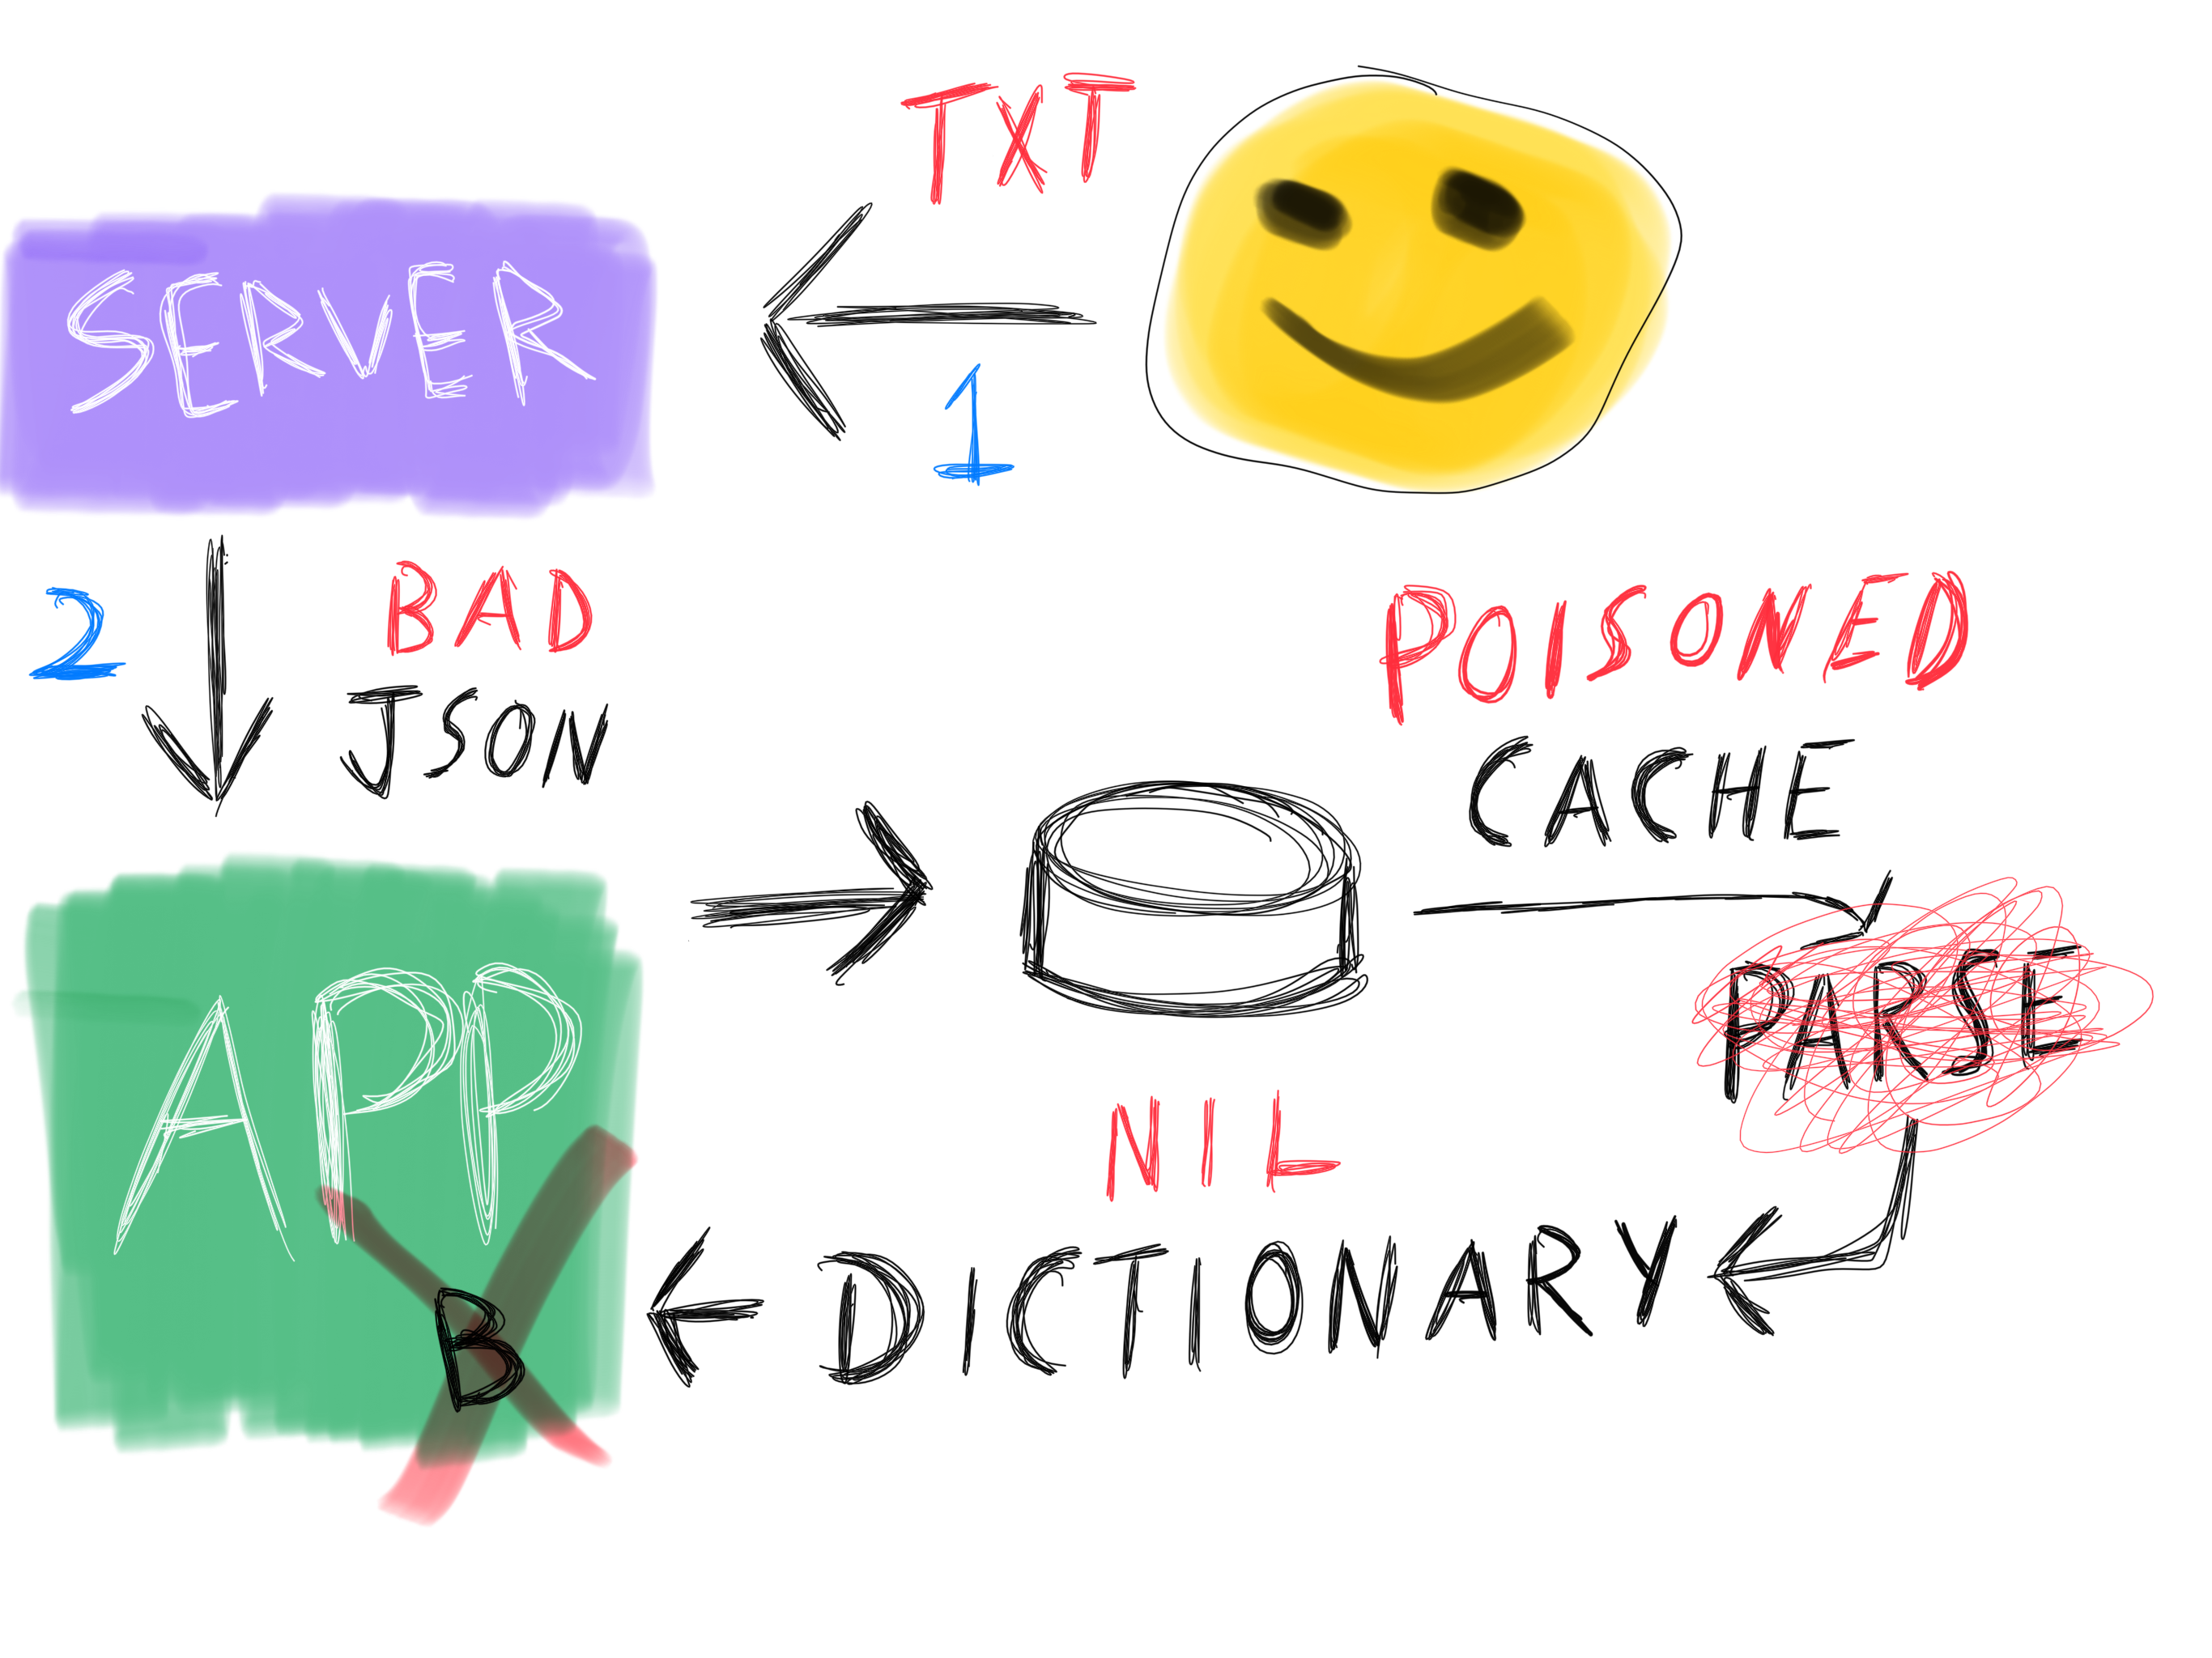 TXT
SERVER
1
2
BAD
JSON
POISONED
CACHE
APP
PARSE
NIL
DICTIONARY
B